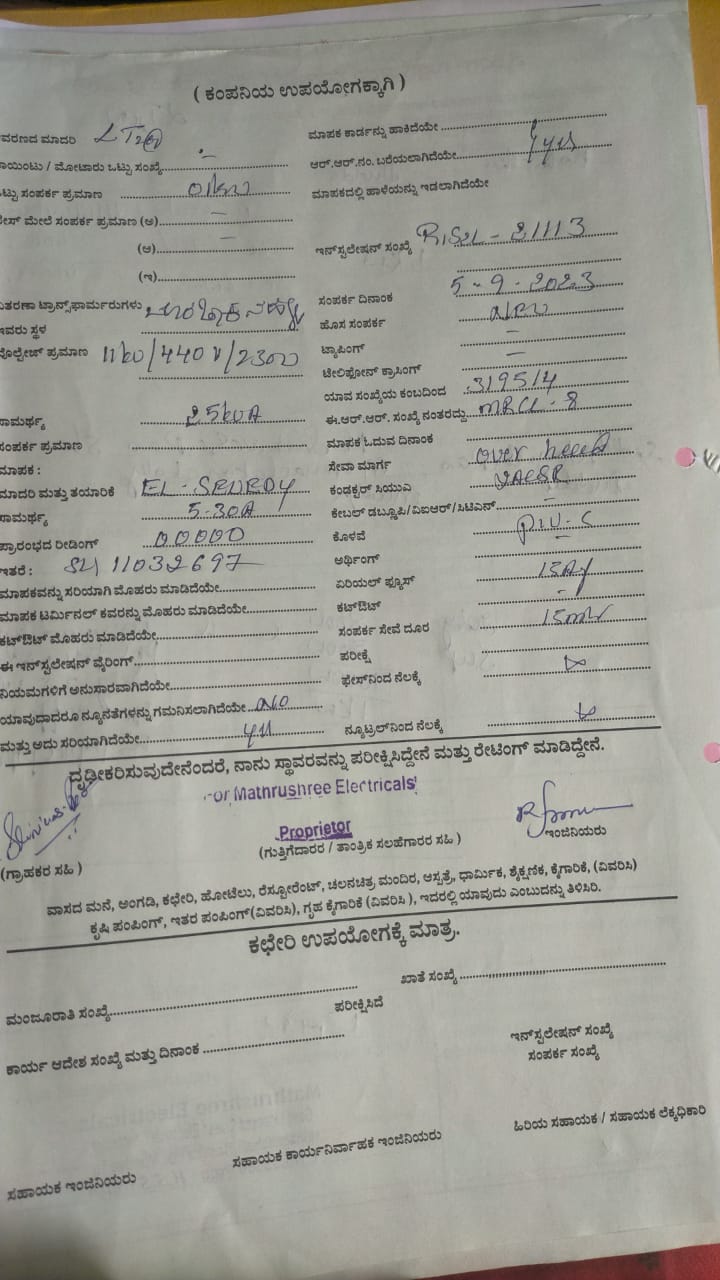 ( ಕಂಪನಿಯ ಉಪಯೋಗಕ್ಕಾಗಿ )
ವರಣದ ಮಾದರಿ LT2@
ಮಾಪಕ ಕಾರ್ಡನ್ನು ಹಾಕಿದೆಯೇ
ಾಯಿಂಟು / ಮೋಟಾರು ಒಟ್ಟು ಸಂಖ್ಯೆ
ಆರ್.ಆರ್.ನಂ. ಬರೆಯಲಾಗಿದೆಯೇ yes
ಟ್ಟು ಸಂಪರ್ಕ ಪ್ರಮಾಣ 01kw
ಮಾಪಕದಲ್ಲಿ ಹಾಳೆಯನ್ನು ಇಡಲಾಗಿದೆಯೇ
ೇಸ್ ಮೇಲೆ ಸಂಪರ್ಕ ಪ್ರಮಾಣ (ಅ) –
(ಆ) –
ಇನ್‌ಸ್ಟಲೇಷನ್ ಸಂಖ್ಯೆ RJSL - 21113
(ಇ)
ಸಂಪರ್ಕ ದಿನಾಂಕ 5 - 9 - 2023
ಿತರಣಾ ಟ್ರಾನ್ಸ್‌ಫಾರ್ಮರುಗಳು
ಇವರು ಸ್ಥಳ
ಹೊಸ ಸಂಪರ್ಕ New
ವೊಲ್ಟೇಜ್ ಪ್ರಮಾಣ 11kv/440v/230v
ಟ್ಯಾಪಿಂಗ್ –
ಟೇಲಿಫೋನ್ ಕ್ರಾಸಿಂಗ್ –
ಯಾವ ಸಂಖ್ಯೆಯ ಕಂಬದಿಂದ 3195/4
ಾಮರ್ಥ್ಯ 25kVA
ಈ.ಆರ್.ಆರ್. ಸಂಖ್ಯೆ ನಂತರದ್ದು MRCL - 8
ಸಂಪರ್ಕ ಪ್ರಮಾಣ
ಮಾಪಕ ಓದುವ ದಿನಾಂಕ
ಮಾಪಕ :
ಸೇವಾ ಮಾರ್ಗ over head
ಮಾದರಿ ಮತ್ತು ತಯಾರಿಕೆ EL - SEWEDY
ಕಂಡಕ್ಟರ್ ಸಿಯುವಿ
ಾಮರ್ಥ್ಯ 5-30A
ಕೇಬಲ್ ಡಬ್ಲೂಪಿ/ವಿಐಆರ್/ಸಿಟಿಎಸ್ –
ಪ್ರಾರಂಭದ ರೀಡಿಂಗ್ 00000
ಕೊಳವೆ
ಇತರೆ : SL 11032697
ಅರ್ಥಿಂಗ್
ಮಾಪಕವನ್ನು ಸರಿಯಾಗಿ ಮೊಹರು ಮಾಡಿದೆಯೇ
ಏರಿಯಲ್ ಫ್ಯೂಸ್
ಮಾಪಕ ಟರ್ಮಿನಲ್ ಕವರನ್ನು ಮೊಹರು ಮಾಡಿದೆಯೇ
ಕಟ್‌ಔಟ್ -
ಕಟ್‌ಔಟ್ ಮೊಹರು ಮಾಡಿದೆಯೇ
ಸಂಪರ್ಕ ಸೇವೆ ದೂರ
ಈ ಇನ್‌ಸ್ಟಲೇಷನ್ ವೈರಿಂಗ್
ಪರೀಕ್ಷೆ
ನಿಯಮಗಳಿಗೆ ಅನುಸಾರವಾಗಿದೆಯೇ
ಫೇಸ್‌ನಿಂದ ನೆಲಕ್ಕೆ ∞
ಯಾವುದಾದರೂ ನ್ಯೂನತೆಗಳನ್ನು ಗಮನಿಸಲಾಗಿದೆಯೇ No
ಮತ್ತು ಅದು ಸರಿಯಾಗಿದೆಯೇ yes
ನ್ಯೂಟ್ರಲ್‌ನಿಂದ ನೆಲಕ್ಕೆ ∞
ದೃಢೀಕರಿಸುವುದೇನೆಂದರೆ, ನಾನು ಸ್ಥಾವರವನ್ನು ಪರೀಕ್ಷಿಸಿದ್ದೇನೆ ಮತ್ತು ರೇಟಿಂಗ್ ಮಾಡಿದ್ದೇನೆ.
For Mathrushree Electricals
Proprietor
(ಗ್ರಾಹಕರ ಸಹಿ )
(ಗುತ್ತಿಗೆದಾರರ / ತಾಂತ್ರಿಕ ಸಲಹೆಗಾರರ ಸಹಿ )
ಇಂಜಿನಿಯರು
ವಾಸದ ಮನೆ, ಅಂಗಡಿ, ಕಛೇರಿ, ಹೋಟೆಲು, ರೆಸ್ಟೋರೆಂಟ್, ಚಲನಚಿತ್ರ ಮಂದಿರ, ಆಸ್ಪತ್ರೆ, ಧಾರ್ಮಿಕ, ಶೈಕ್ಷಣಿಕ, ಕೈಗಾರಿಕೆ, (ವಿವರಿಸಿ)
ಕೃಷಿ ಪಂಪಿಂಗ್, ಇತರ ಪಂಪಿಂಗ್(ವಿವರಿಸಿ), ಗೃಹ ಕೈಗಾರಿಕೆ (ವಿವರಿಸಿ ), ಇದರಲ್ಲಿ ಯಾವುದು ಎಂಬುದನ್ನು ತಿಳಿಸಿರಿ.
ಕಛೇರಿ ಉಪಯೋಗಕ್ಕೆ ಮಾತ್ರ.
ಮಂಜೂರಾತಿ ಸಂಖ್ಯೆ
ಖಾತೆ ಸಂಖ್ಯೆ
ಪರೀಕ್ಷಿಸಿದೆ
ಕಾರ್ಯ ಆದೇಶ ಸಂಖ್ಯೆ ಮತ್ತು ದಿನಾಂಕ
ಇನ್‌ಸ್ಟಲೇಷನ್ ಸಂಖ್ಯೆ
ಸಂಪರ್ಕ ಸಂಖ್ಯೆ
ಸಹಾಯಕ ಇಂಜಿನಿಯರು
ಸಹಾಯಕ ಕಾರ್ಯನಿರ್ವಾಹಕ ಇಂಜಿನಿಯರು
ಹಿರಿಯ ಸಹಾಯಕ / ಸಹಾಯಕ ಲೆಕ್ಕಧಿಕಾರಿ